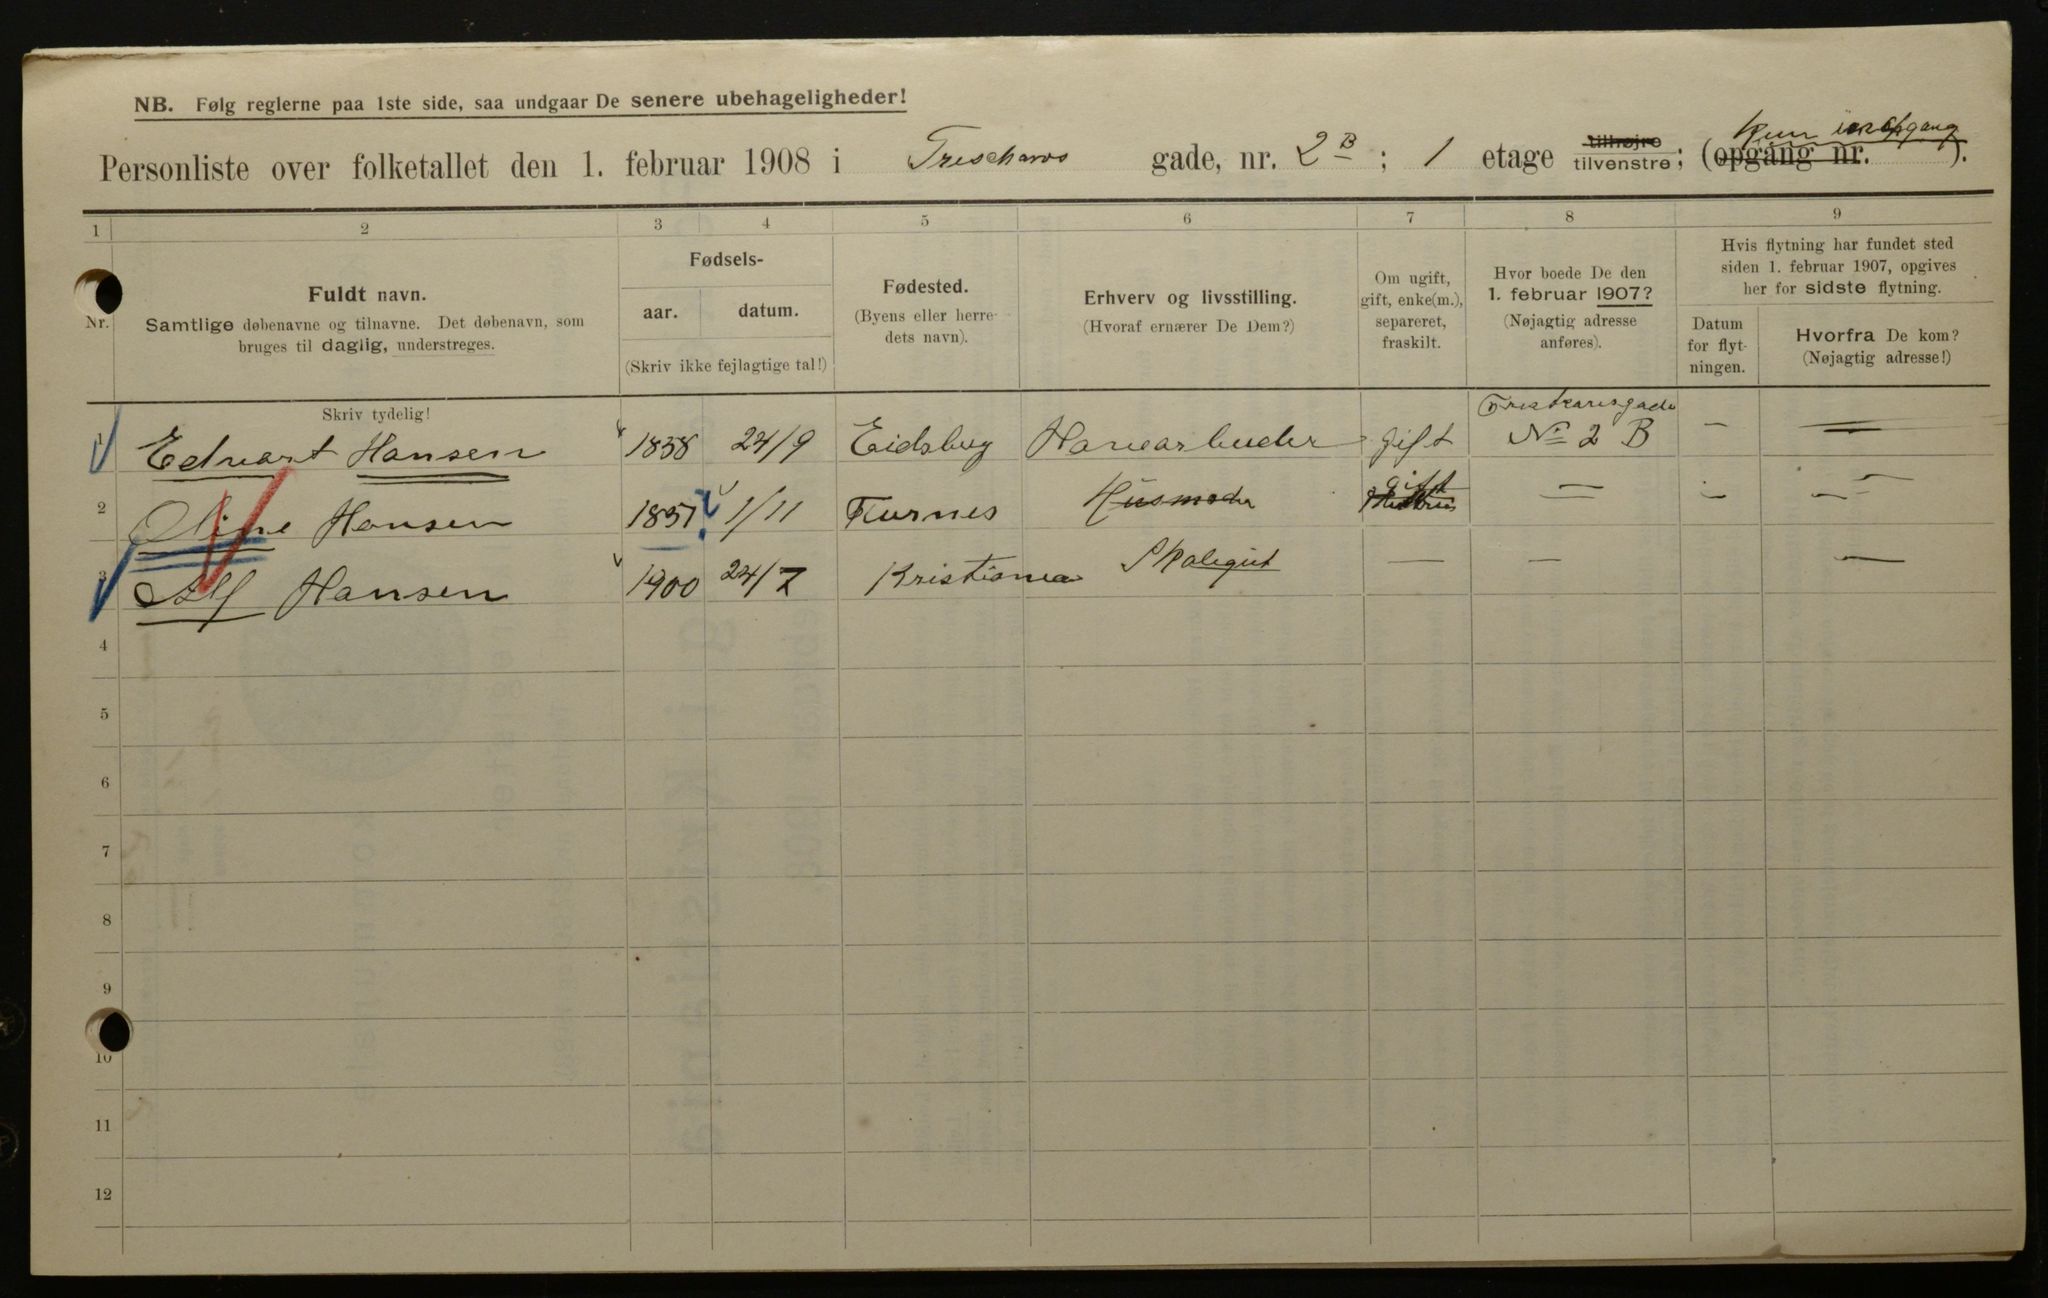 NB. Følg reglerne paa 1ste side, saa undgaar De senere ubehageligheder!
Personliste over folketallet den 1. februar 1908 i Treschows gade, nr. 2 B ; 1 etage tilhøjre tilvenstre; (opgang nr. ). Kun en opgang
1 2 3 4 5 6 7 8 9
Nr.
Fuldt navn.
Samtlige døbenavne og tilnavne. Det døbenavn, som
bruges til daglig, understreges.
Skriv tydelig!
Fødsels-
aar. datum.
(Skriv ikke fejlagtige tal!)
Fødested.
(Byens eller herre-
dets navn).
Erhverv og livsstilling.
(Hvoraf ernærer De Dem?)
Om ugift,
gift, enke(m.),
separeret,
fraskilt.
Hvor boede De den
1. februar 1907?
(Nøjagtig adresse
anføres).
Hvis flytning har fundet sted
siden 1. februar 1907, opgives
her for sidste flytning.
Datum
for flyt-
ningen.
Hvorfra De kom?
(Nøjagtig adresse!)
1 Edvart Hansen 1838 24/9 Eidsberg gift No 2 B — —
2 Oline Hansen 1837 ? 1/11 Furnes Husmoder gift — — —
3 Alf Hansen 1900 24/7 Kristiania Skolegut — — —
4
5
6
7
8
9
10
11
12